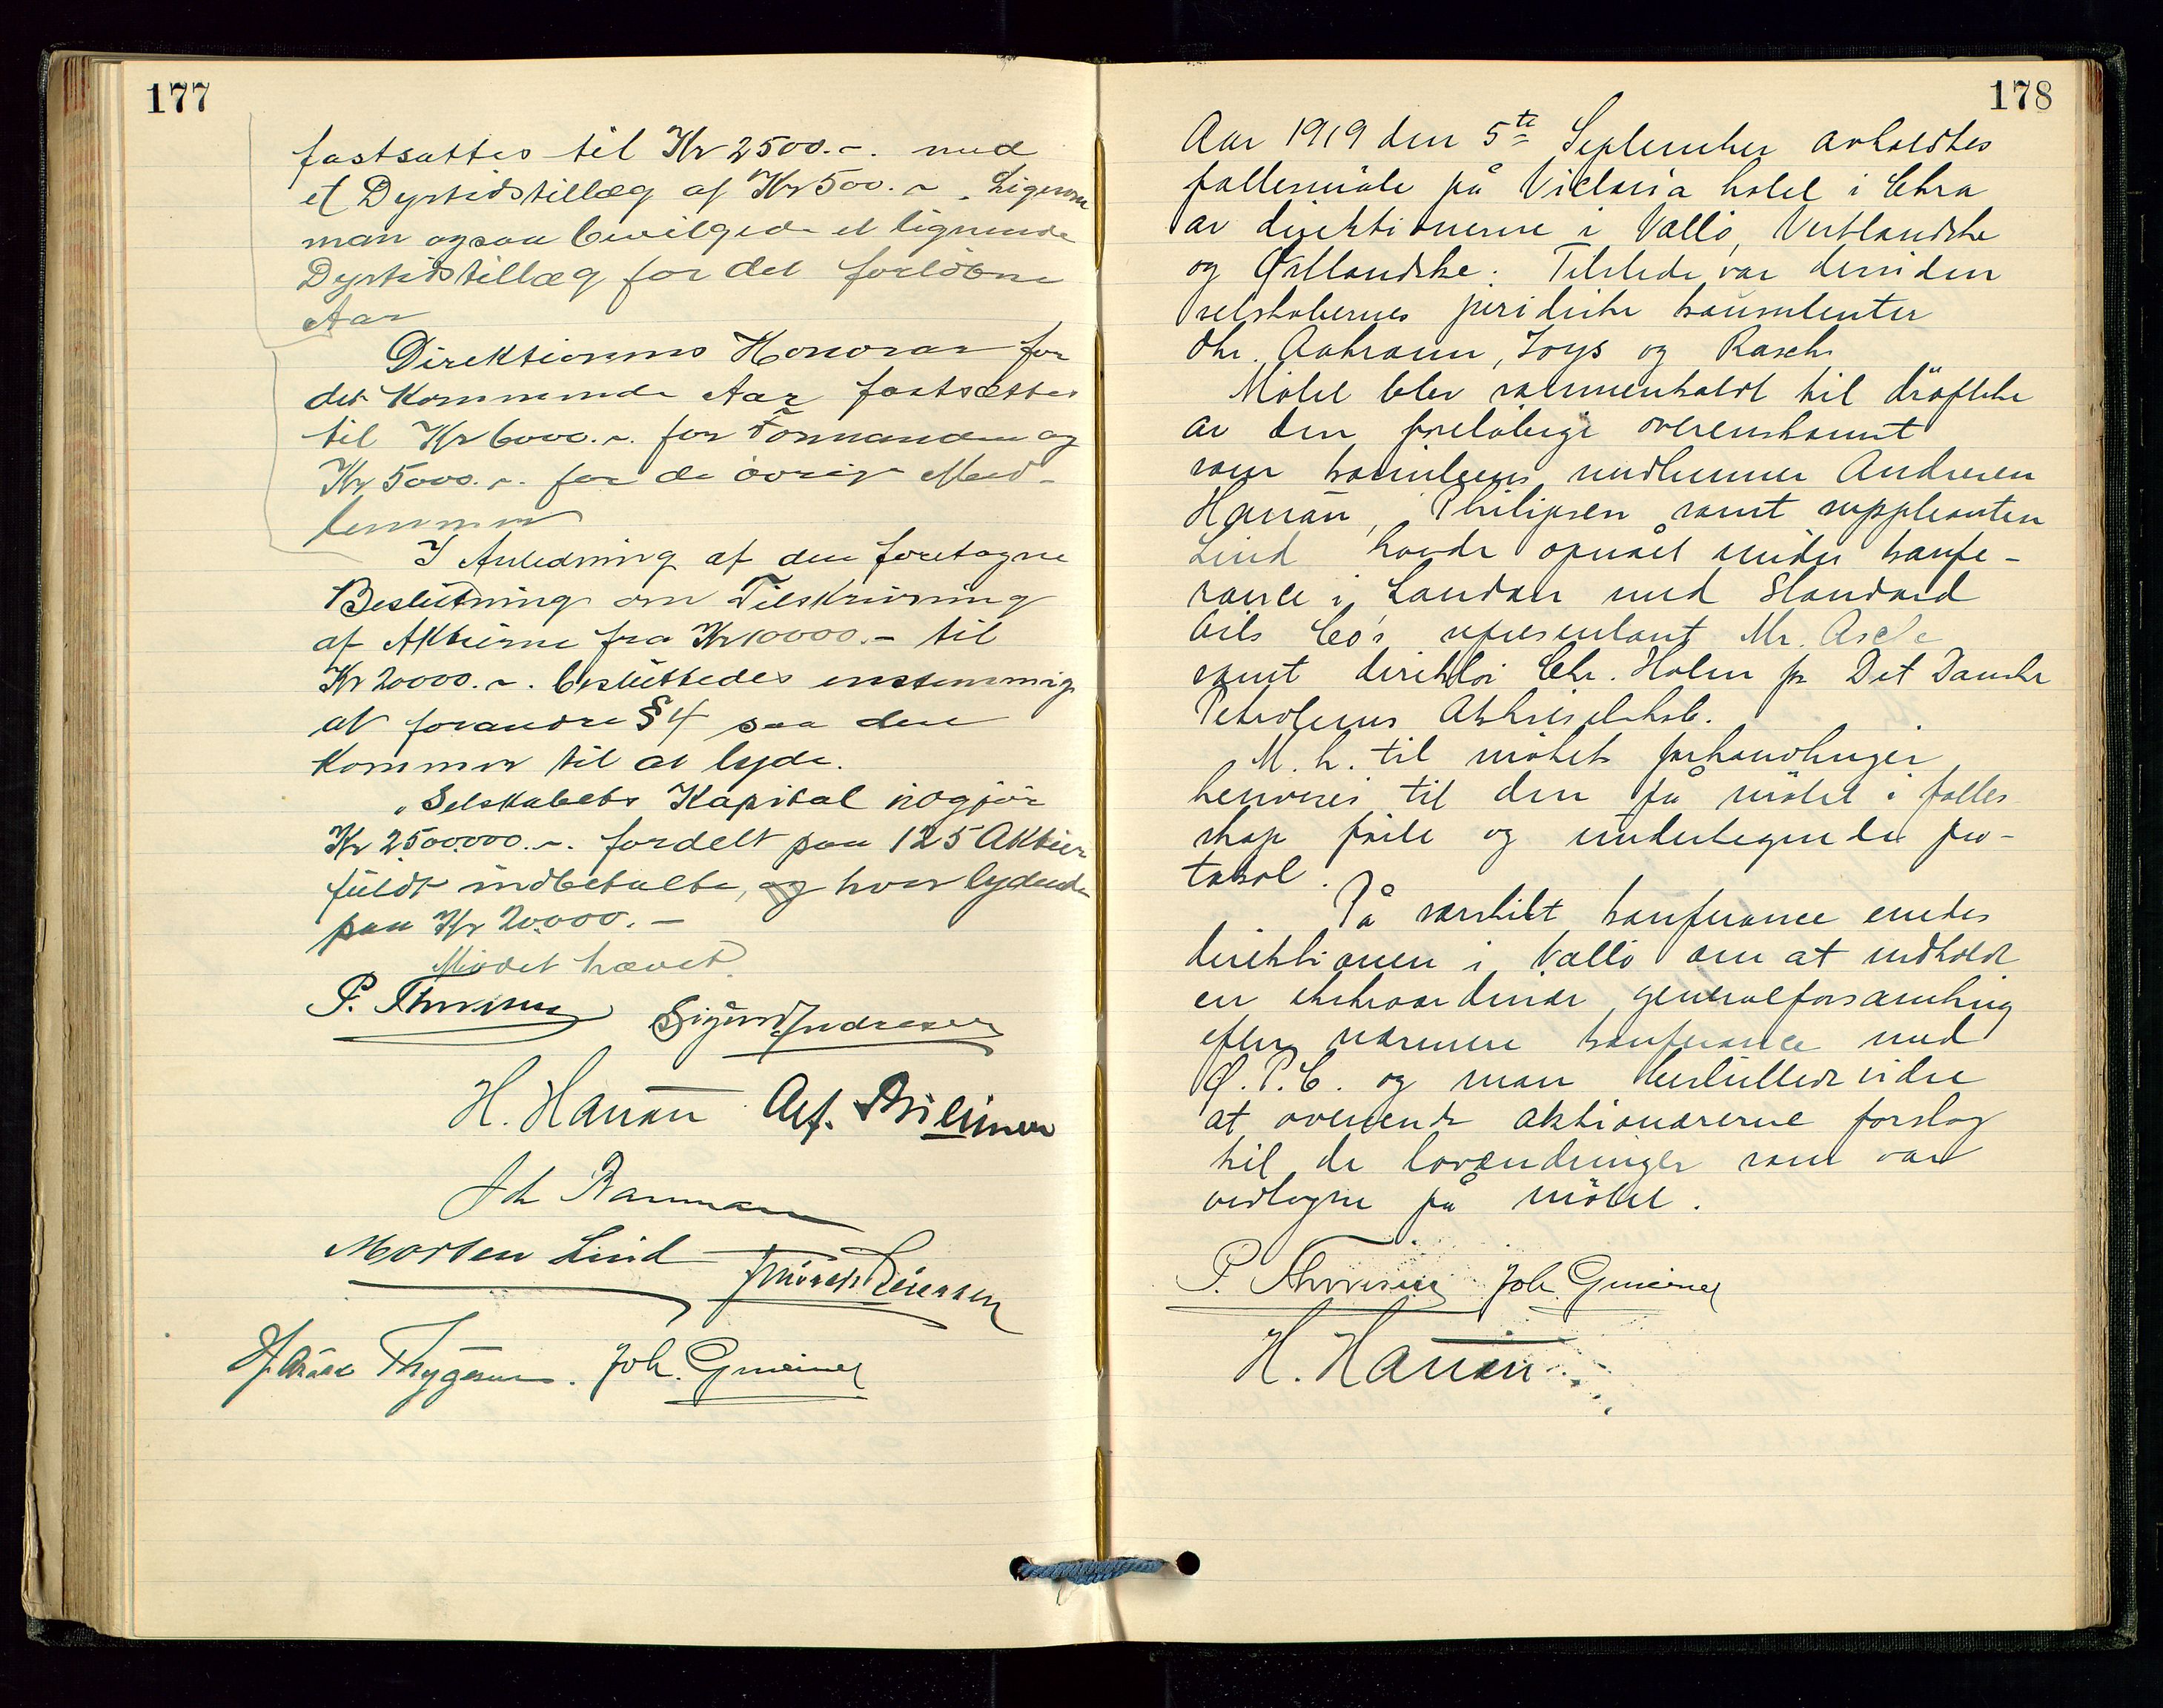 177
fastsattes til Kr 2500.-. med
et Dyrtidstillæg af Kr 500.-. Ligesom
man ogsaa bevilgede et lignende
Dyrtidstillæg for det forløbne
Aar
Direktionens Honorar for
det kommende Aar fastsættes
til Kr 6000.-. for Formanden og
Kr 5000.-. for de övrige Med-
lemmer
I Anledning af den foretagne
Beslutning om Tilskrivning
af Aktierne fra Kr 10000.- til
Kr 20000.-. besluttedes enstemmig
at forandre § 4 saa den
kommer til at lyde.
"Selskabets Kapital udgjør
Kr 2.500.000.-. fordelt paa 125 Aktier
fuldt indbetalte, og hver lydende
paa Kr 20.000.-
Mödet hævet.
P. Thoresen Sigurd Andresen
H. Harran
Joh Ramman
Morten Lind
Thygesen. Joh. Gmeiner
178
Aar 1919 den 5te September avholdtes
fællesmöte på Victoria hotel i Chra
av direktionerne i Vallö, Vestlandske
og Østlandske. Tilstede var desuden
selskabernes juridiske konsulenter
dhr. Aakrann, Joys og Rasch.
Mötet blev sammenkaldt til dröftelse
av den foreløbige overenskomst
som komiteens medlemmer Andresen
Harran, Philipsen samt suppleanten
Lind havde opnået under konfe-
rance i London med Standard
Oils Co's representant Mr.
samt direktör Chr. Holm for Det Danske
Petroleums Aktieselskab.
M. h. til mötets forhandlinger
henvises til den på mötet i fælles
skap förte og undertegnede pro-
tokol.
På særskilt konferance enedes
direktionen i Vallö om at indkalde
en ekstraordinær generalforsamling
efter nærmere konferance med
Ø. P. C. og man besluttede videre
at oversende aktionærerne forslag
til de lovændringer som var
vedtagne på mötet.
P. Thoresen Joh. Gmeiner
H. Harran